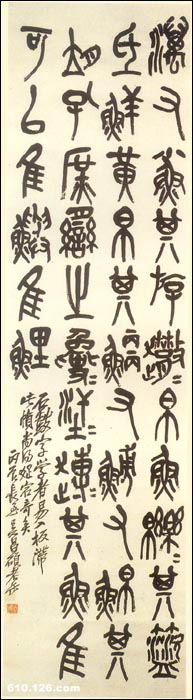 澫又小魚其斿趣帛魚皪其盜
氐鮮黃帛其鯾又鯆又鮊其
胡孔庶臠之㲋汗趣其魚隹
可以隹鱮隹鯉
石鼓字學者易入板滯
此幀尚得婀奇矣
丙辰長至吳昌碩老缶
610.126.com